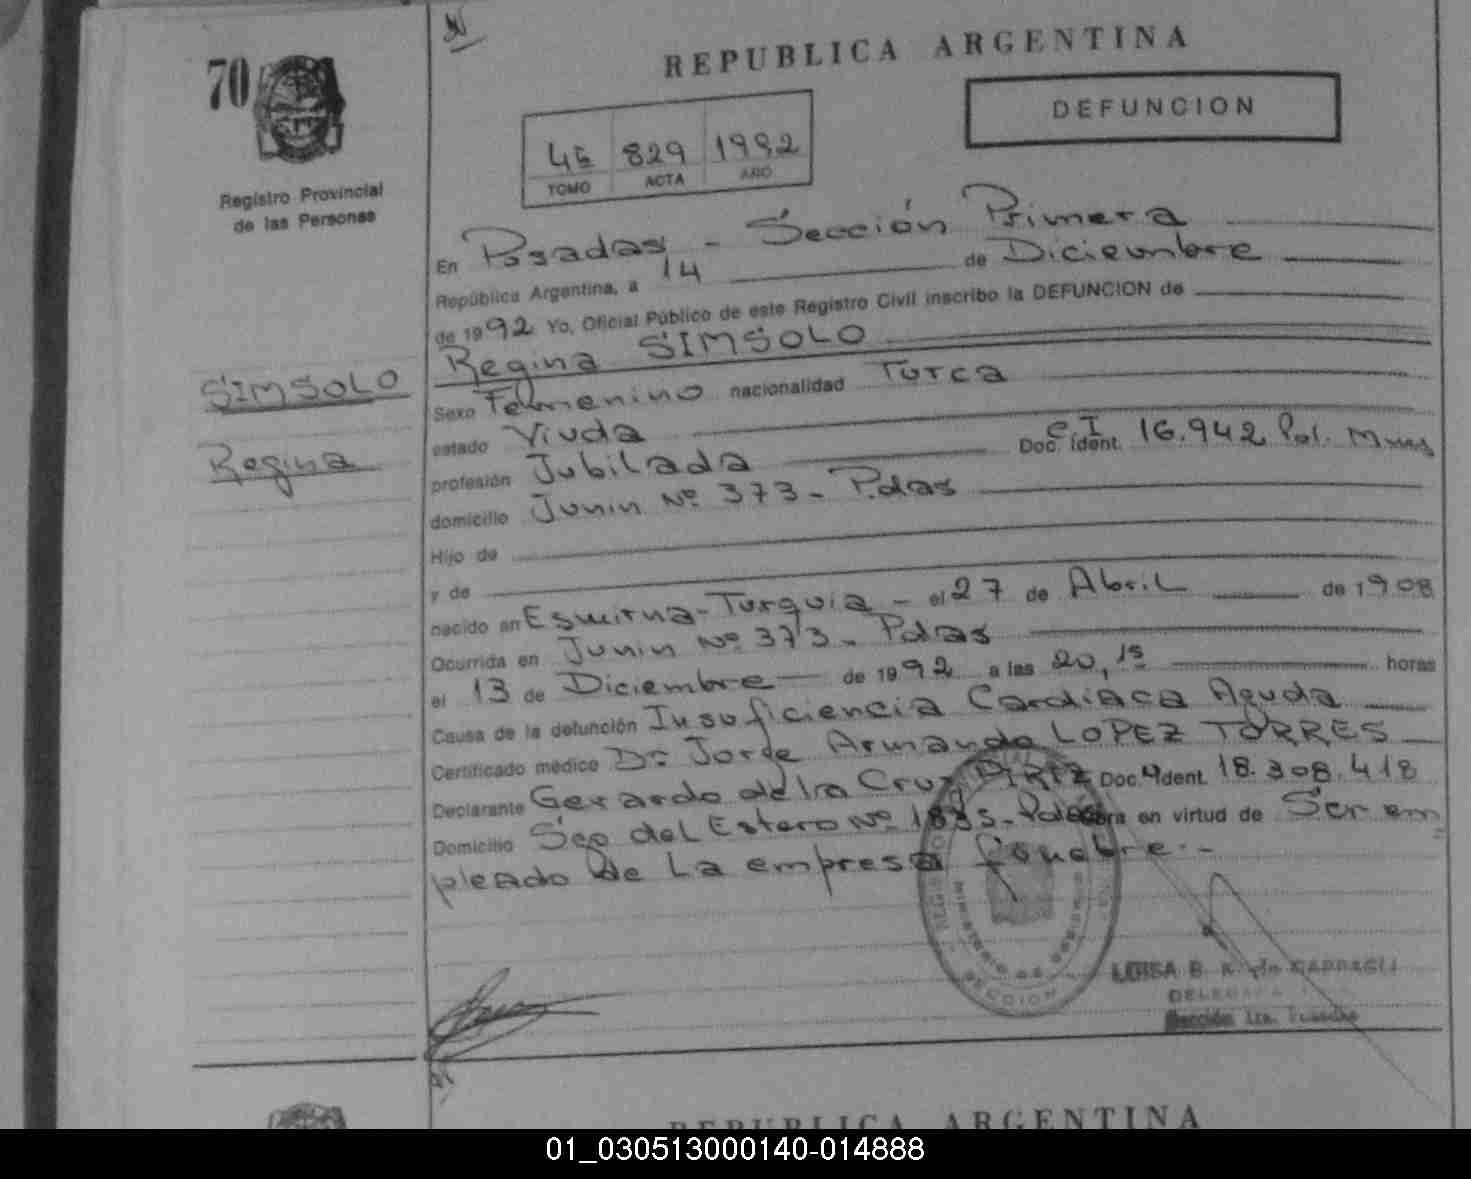 70
REPUBLICA ARGENTINA
DEFUNCION
829 1992
TOMO ACTA AÑO
Registro Provincial
de las Personas
En Posadas - Sección Primera
República Argentina, a 14 de Diciembre
de 1992 Yo, Oficial Público de este Registro Civil inscribo la DEFUNCION de
Regina SIMSOLO
SIMSOLO
Regina
Sexo Femenino nacionalidad Turca
estado Viuda
profesión Jubilada Doc. ident. C.I 16.942 Pol. Mnes
domicilio Junin Nº 373 - Pdas
Hijo de
y de
nacido en Esmirna - Turquia - el 27 de Abril de 1908
Ocurrida en Junin Nº 373 - Pdas
el 13 de Diciembre de 1992 a las 20,15 horas
Causa de la defunción Insuficiencia Cardiaca Aguda
Certificado médico Dr Jorge Armando LOPEZ TORRES
Declarante Gerardo de la Cruz Doc. Ident. 18.308.418
Domicilio Sgo del Estero Nº 1835 - Pdas Obra en virtud de Ser em
pleado de La empresa fúnebre.-
MINISTERIO DE GOBIERNO
SECCION
LUISA B.
Sección 1ra. Posadas
REPUBLICA ARGENTINA
01_030513000140-014888